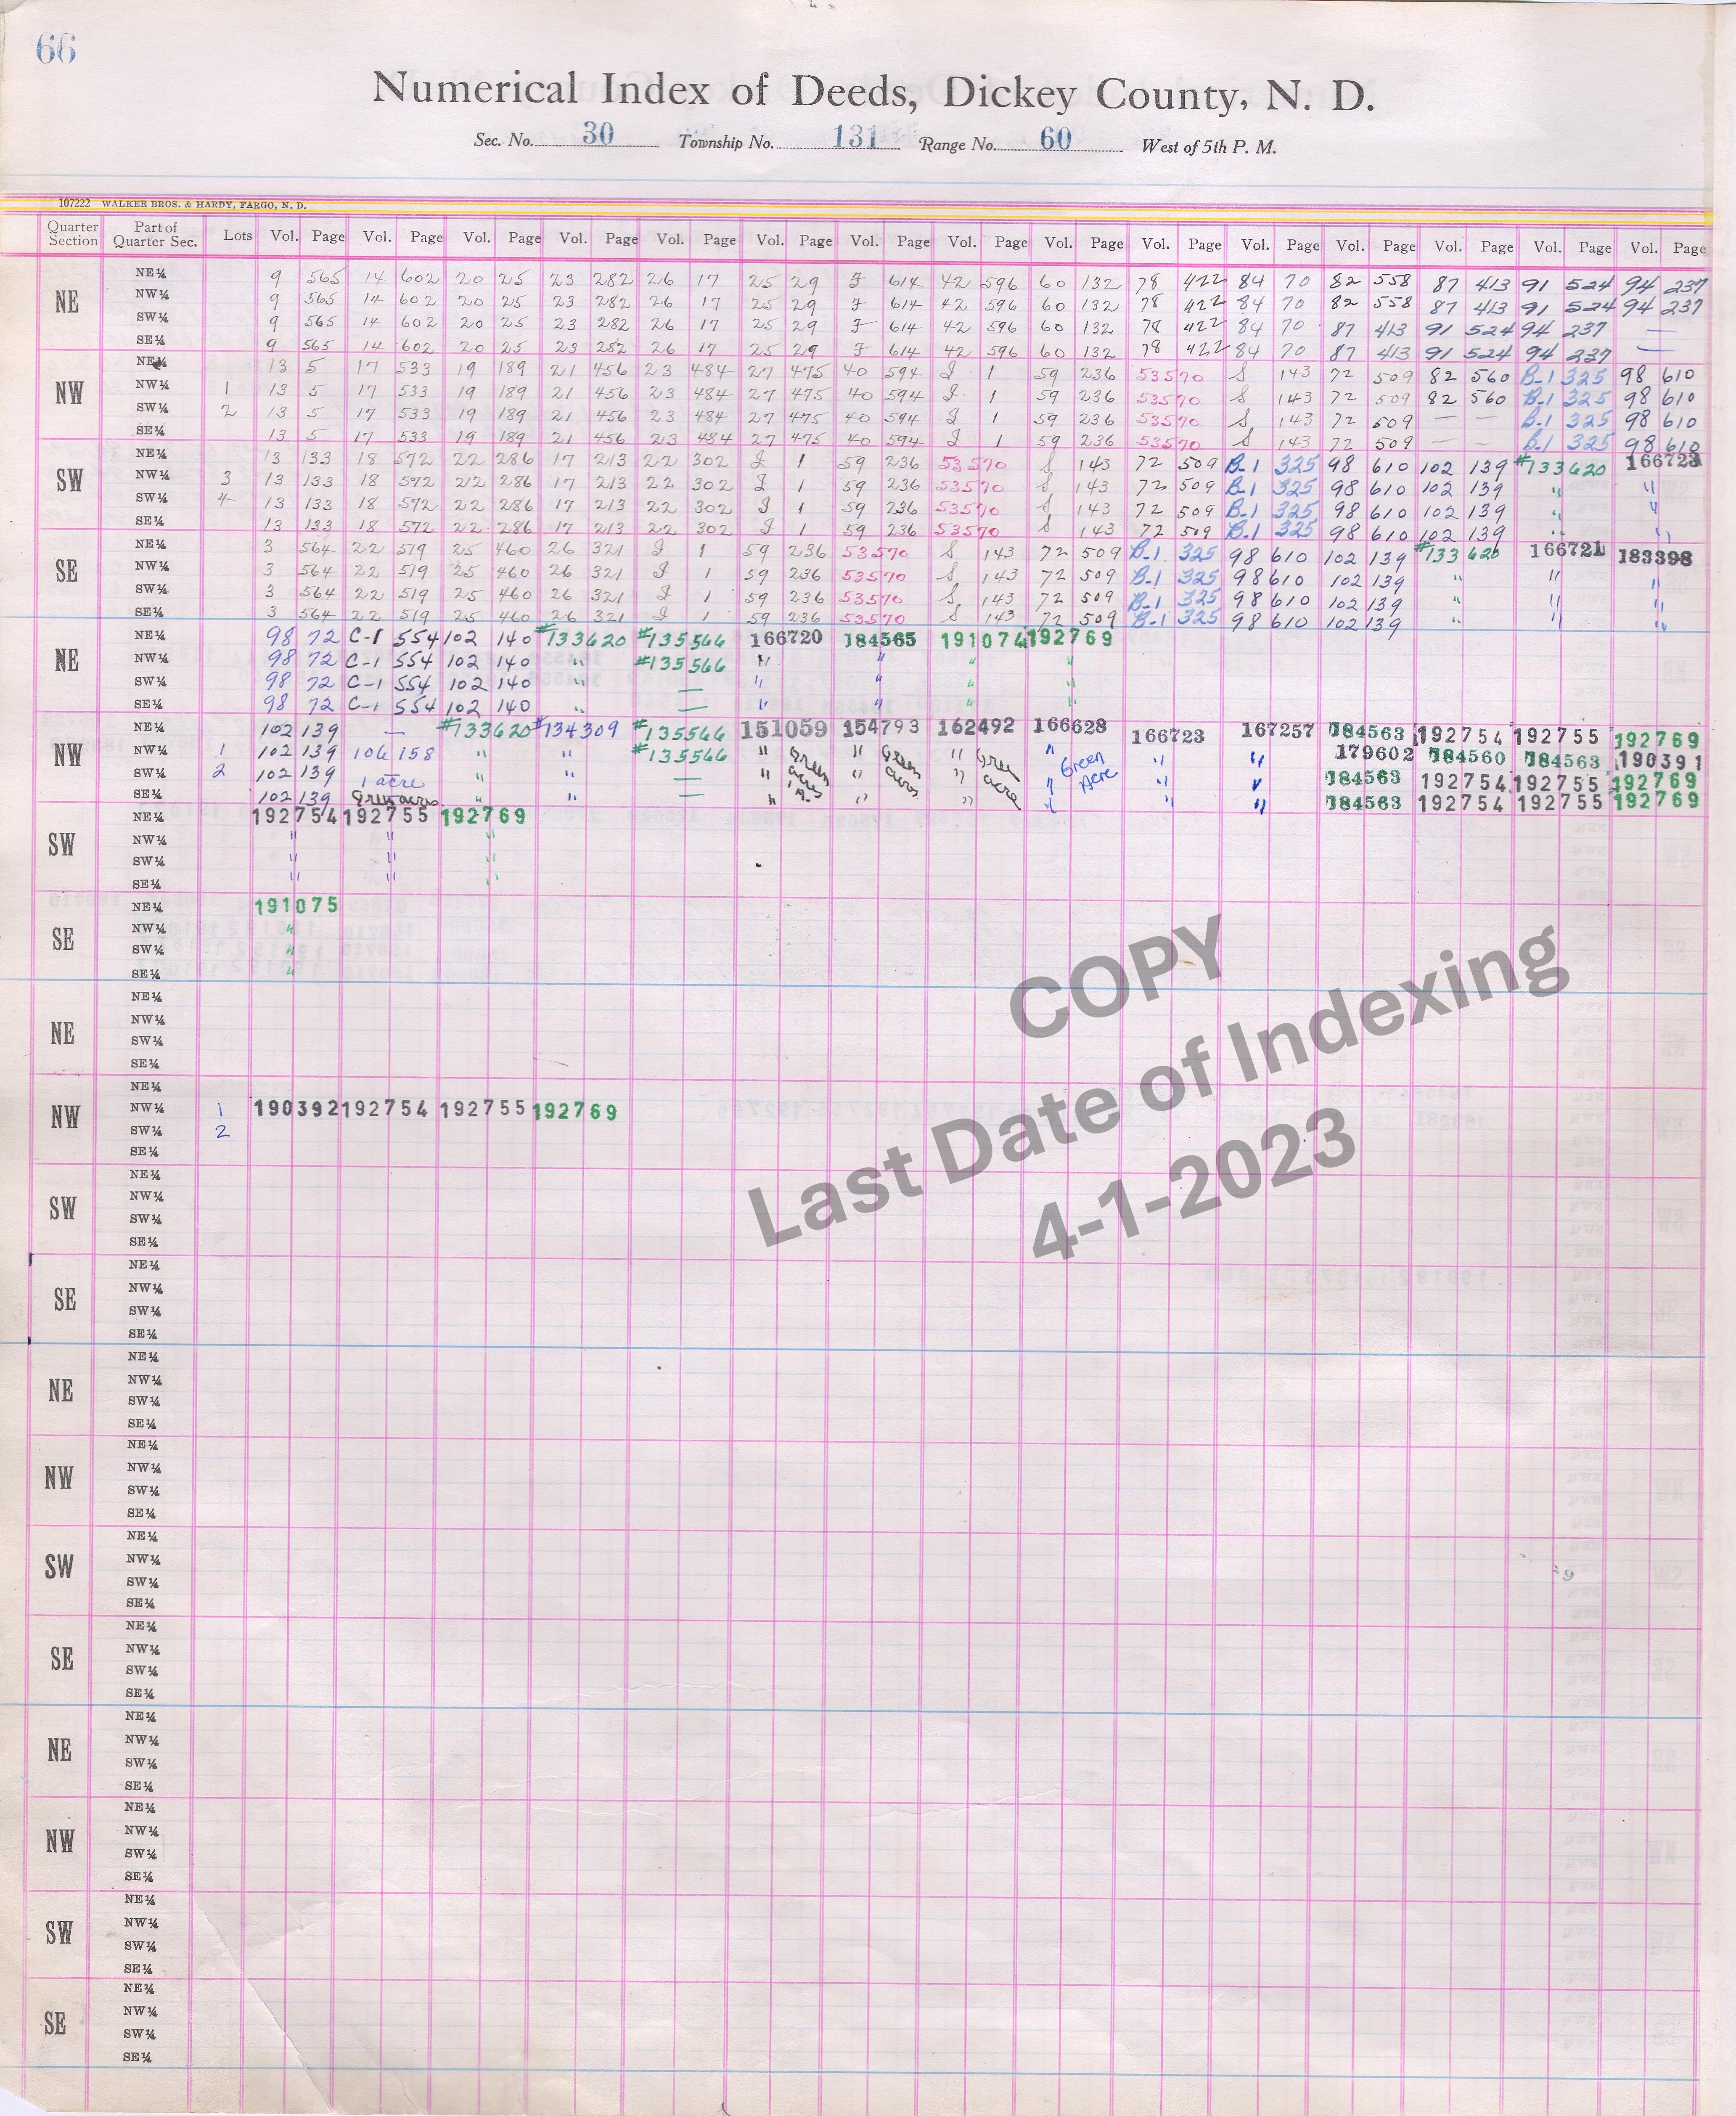 66
Numerical Index of Deeds, Dickey County, N. D.
Sec. No. 30 Township No. 131 Range No. 60 West of 5th P. M.
107222 WALKER BROS. & HARDY, FARGO, N. D.
Quarter Section Part of Quarter Sec. Lots Vol. Page Vol. Page Vol. Page Vol. Page Vol. Page Vol. Page Vol. Page Vol. Page Vol. Page Vol. Page Vol. Page Vol. Page Vol. Page Vol. Page Vol. Page
NE
NE¼ 9 565 14 602 20 25 23 282 26 17 25 29 F 614 42 596 60 132 78 422 84 70 82 558 87 413 91 524 94 237
NW¼ 9 565 14 602 20 25 23 282 26 17 25 29 F 614 42 596 60 132 78 422 84 70 82 558 87 413 91 524 94 237
SW¼ 9 565 14 602 20 25 23 282 26 17 25 29 F 614 42 596 60 132 78 422 84 70 87 413 91 524 94 237 —
SE¼ 9 565 14 602 20 25 23 282 26 17 25 29 F 614 42 596 60 132 78 422 84 70 87 413 91 524 94 237 —
NW
NE¼ 13 5 17 533 19 189 21 456 23 484 27 475 40 594 I 1 59 236 53570 S 143 72 509 82 560 B-1 325 98 610
NW¼ 1 13 5 17 533 19 189 21 456 23 484 27 475 40 594 I 1 59 236 53570 S 143 72 509 82 560 B-1 325 98 610
SW¼ 2 13 5 17 533 19 189 21 456 23 484 27 475 40 594 I 1 59 236 53570 S 143 72 509 — — B-1 325 98 610
SE¼ 13 5 17 533 19 189 21 456 23 484 27 475 40 594 I 1 59 236 53570 S 143 72 509 — — B-1 325 98 610
SW
NE¼ 13 133 18 572 22 286 17 213 22 302 I 1 59 236 53570 S 143 72 509 B-1 325 98 610 102 139 #133620 166723
NW¼ 3 13 133 18 572 22 286 17 213 22 302 I 1 59 236 53570 S 143 72 509 B-1 325 98 610 102 139 " "
SW¼ 4 13 133 18 572 22 286 17 213 22 302 I 1 59 236 53570 S 143 72 509 B-1 325 98 610 102 139 " "
SE¼ 13 133 18 572 22 286 17 213 22 302 I 1 59 236 53570 S 143 72 509 B-1 325 98 610 102 139 " "
SE
NE¼ 3 564 22 519 25 460 26 321 I 1 59 236 53570 S 143 72 509 B-1 325 98 610 102 139 #133620 166721 183398
NW¼ 3 564 22 519 25 460 26 321 I 1 59 236 53570 S 143 72 509 B-1 325 98 610 102 139 " " "
SW¼ 3 564 22 519 25 460 26 321 I 1 59 236 53570 S 143 72 509 B-1 325 98 610 102 139 " " "
SE¼ 3 564 22 519 25 460 26 321 I 1 59 236 53570 S 143 72 509 B-1 325 98 610 102 139 " " "
NE
NE¼ 98 72 C-1 554 102 140 #133620 #135566 166720 184565 191074 192769
NW¼ 98 72 C-1 554 102 140 " #135566 " " " "
SW¼ 98 72 C-1 554 102 140 " — " " " "
SE¼ 98 72 C-1 554 102 140 " — " " " "
NW
NE¼ 102 139 — #133620 #134309 #135566 151059 154793 162492 166628 166723 167257 184563 192754 192755 192769
NW¼ 1 102 139 106 158 " " #135566 " Green " Green " Green " Green " " 179602 184560 184563 190391
SW¼ 2 102 139 1 acre " " — " acres " acres " acre " Acre " " 184563 192754 192755 192769
SE¼ 102 139 Green acres " " — " " " " " " 184563 192754 192755 192769
SW
NE¼ 192754 192755 192769
NW¼ " " "
SW¼ " " "
SE¼ " " "
SE
NE¼ 191075
NW¼ "
SW¼ "
SE¼ "
NE
NE¼
NW¼
SW¼
SE¼
NW
NE¼
NW¼ 1 190392 192754 192755 192769
SW¼ 2
SE¼
SW
NE¼
NW¼
SW¼
SE¼
SE
NE¼
NW¼
SW¼
SE¼
NE
NE¼
NW¼
SW¼
SE¼
NW
NE¼
NW¼
SW¼
SE¼
SW
NE¼
NW¼
SW¼
SE¼
SE
NE¼
NW¼
SW¼
SE¼
NE
NE¼
NW¼
SW¼
SE¼
NW
NE¼
NW¼
SW¼
SE¼
SW
NE¼
NW¼
SW¼
SE¼
SE
NE¼
NW¼
SW¼
SE¼
COPY
Last Date of Indexing
4-1-2023